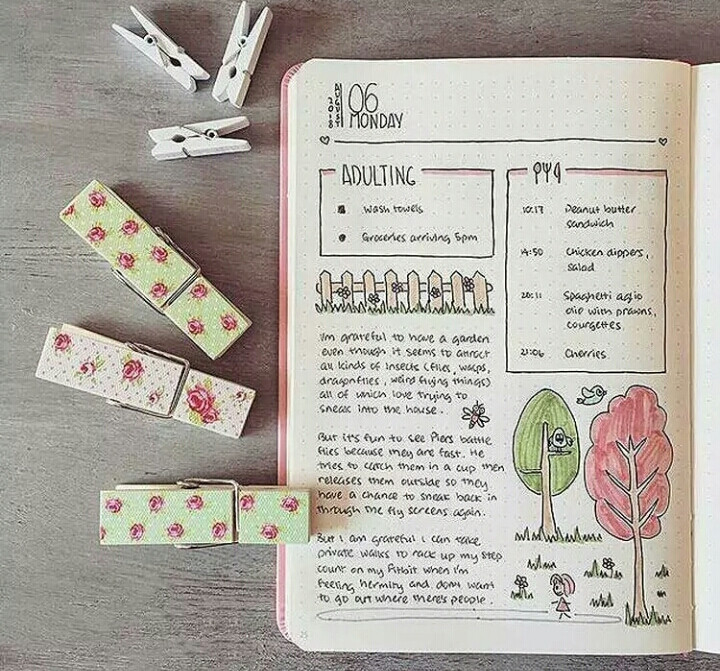 AUGUST
2018
06
MONDAY
ADULTING
wash towels
Groceries arriving 5pm
10:17 Peanut butter
sandwich
14:50 Chicken dippers,
salad
20:11 Spaghetti aglio
olio with prawns,
courgettes
21:06 Cherries
I'm grateful to have a garden
even though it seems to attract
all kinds of insects (flies, wasps,
dragonflies, weird flying things)
all of which love trying to
sneak into the house.
But it's fun to see Piers battle
flies because they are fast. He
tries to catch them in a cup then
releases them outside so they
have a chance to sneak back in
through the fly screens again.
But I am grateful I can take
private walks to rack up my step
count on my Fitbit when I'm
feeling hermity and don't want
to go out where there's people.
25